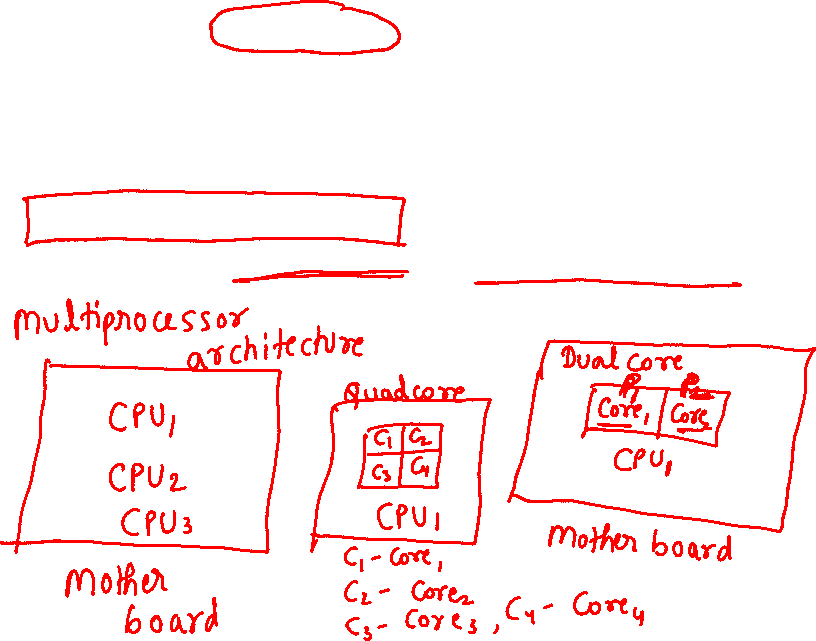 multiprocessor
architecture
CPU1
CPU2
CPU3
Mother
board
Quadcore
C1 C2
C3 C4
CPU1
C1 - Core1
C2 - Core2
C3 - Core3, C4 - Core4
Dual core
P1
Core1 Core
CPU1
Mother board